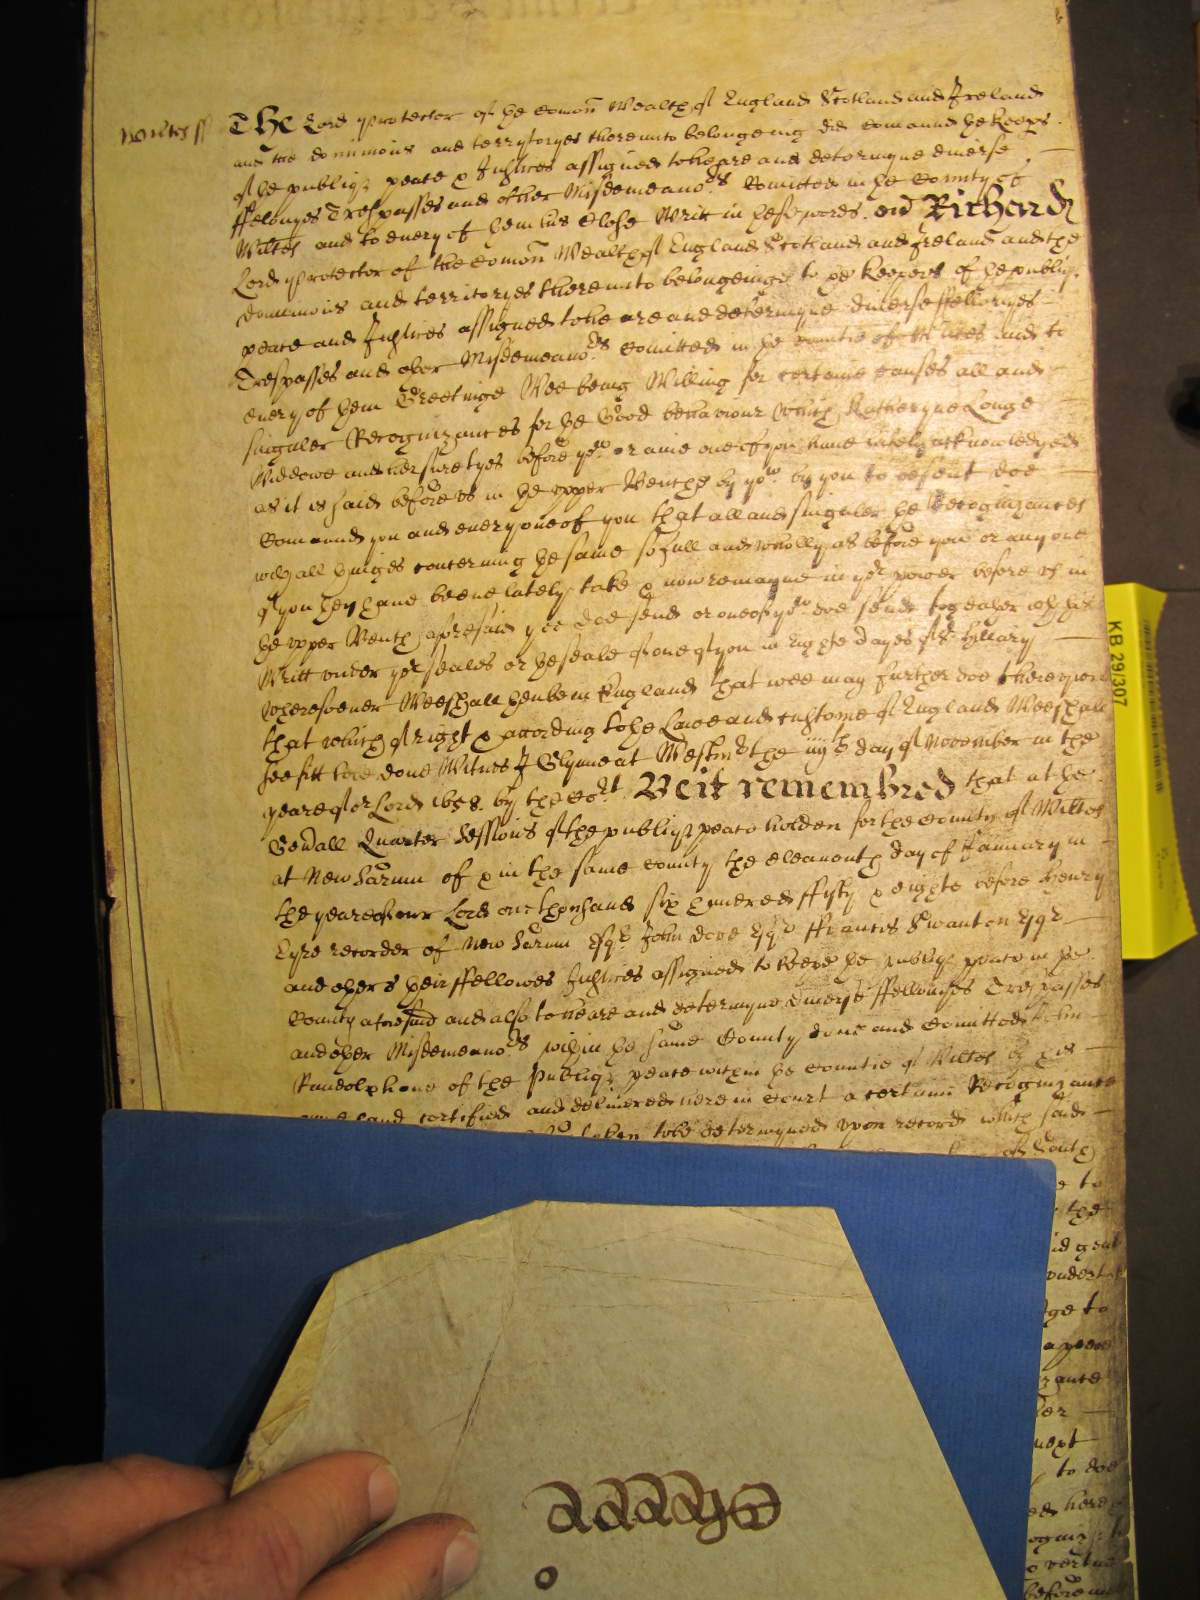 Wiltes ss
THe Lord Protector of the Comon Wealth of England Scotland and Ireland
and the dominions and terrytoryes thereunto belongeing did Comaund the Keeps
of the publiq peace & Justices assigned to heare and determyne diverse
ffelonyes Trespasses and other Misdemeanors Comitted in the County of
Wiltes and to every of them his Close Writt in these words. Richard
Lord Protector of the Comon Wealth of England Scotland and Ireland and the
dominions and territoryes thereunto belongeinge to the keepers of the publiq
peace and Justices assigned to heare and determyne diverse ffellonyes
Trespasses and other Misdemeanors Comitted in the Countie of Wiltes and to
every of them Greetinge Wee being Willing for certaine causes all and
singuler Recognizances for the Good behaviour which Katheryne Longe
Widdowe and her suretyes before you or anie one of you have lately acknowledged
as it is said before us in the upper Benche by you to be sent doe
Comaund you and every one of you that all and singuler the Recognizances
with all thinges concerning the same so full and wholly as before you or any one
of you they have beene lately take & now remayne in yor power before us in
the upper Bench aforesaid yee doe send or one of you doe send together with this
Writt under yor seales or the seale of one of you in Eighte dayes of St Hillary
wheresoever Wee shall then be in England That wee may further doe thereupon
that which of right & according to the Lawe and custome of England Wee shall
see fitt to be done Witnes J Glynne at Westmr the iiijth day of November in the
yeare of or Lord 1658. by the Cort. Be it remembred that at the
Genall Quarter Sessions of the publiq peace holden for the County of Wiltes
at New Sarum of & in the same County the eleaventh day of January in
the yeare of our Lord one thousand six hundred fifty & eighte before Henry
Eyre recorder of New Sarum Esqr John Dove Esqr ffrancis Swanton Esqr
and others their ffellowes Justices assigned to keepe the publiq peace in the
County aforesaid and also to heare and determyne diverse ffellonyes Trespasses
and other Misdemeanors within the same County done and Comitted John
Randolph one of the publiq peace within the Countie of Wiltes by his
hand certified and delivered here in Court a certain Recognizance
taken to be determyned upon record which said
of South
to
the
id gent
ge to
zance
next
to doe
here
KB 29/307